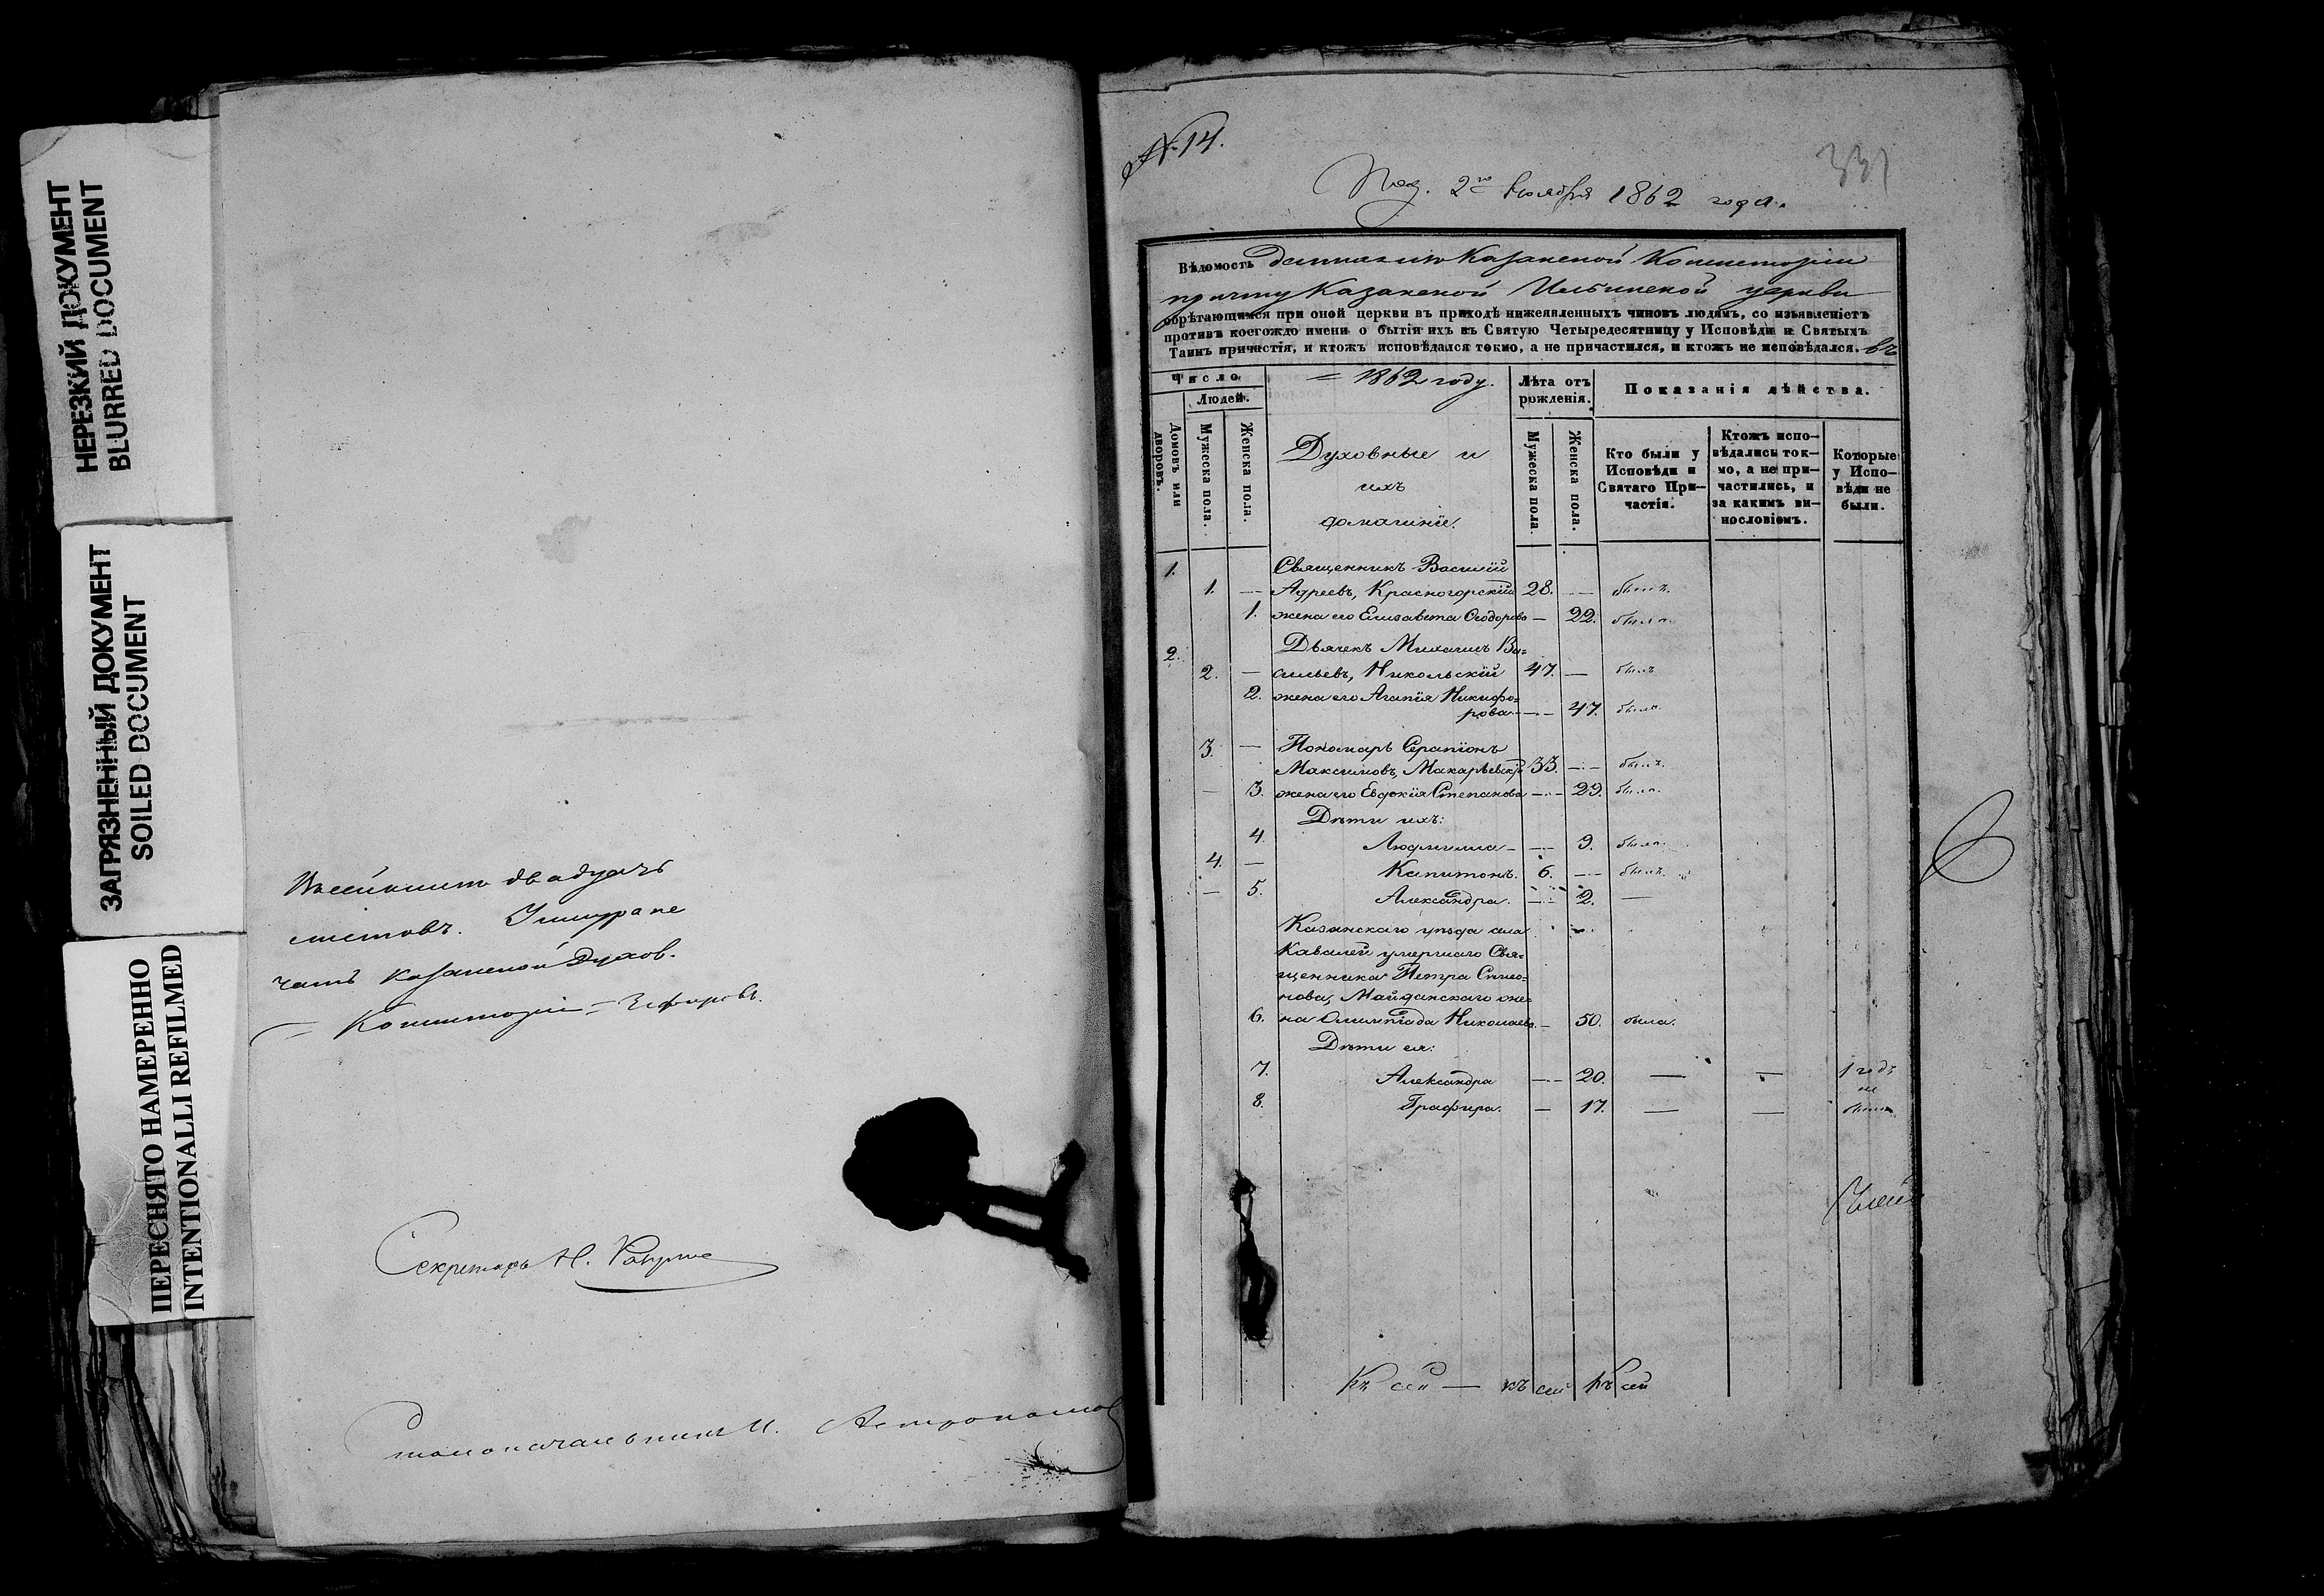 НЕРЕЗКИЙ ДОКУМЕНТ
BLURRED DOCUMENT
ЗАГРЯЗНЕННЫЙ ДОКУМЕНТ
SOILED DOCUMENT
ПЕРЕСНЯТО НАМЕРЕННО
INTENTIONALLI REFILMED
двадцать
листовъ.
Казанской Духов.
Консисторіи
Секретарь Н.
Столоначальникъ И.
№ 14.
331
2го Ноября 1862 года.
Вѣдомость Казанской Консисторіи
причту Казанской Ильинской церкви
обрѣтающимся при оной церкви въ приходѣ нижеявленныхъ чиновъ людямъ, со изъявленіетъ
противъ коегождо имени о бытіи ихъ въ Святую Четыредесятницу у Исповѣди и Святыхъ
Таинъ причастія, и ктожъ исповѣдался токмо, а не причастился, и ктожъ не исповѣдался. въ
Число
1862 году.
Лѣта отъ рожденія.
Показанія дѣйства.
Людей.
Домовъ или дворовъ.
Мужеска пола.
Женска пола.
Духовные и
ихъ
домашніе.
Мужеска пола
Женска пола.
Кто были у
Исповѣди и
Святаго При-
частія.
Ктожъ испо-
вѣдались ток-
мо, а не при-
частились, и
за какимъ ви-
нословіемъ.
Которые
у Испо-
вѣди не
были.
1. Священникъ Василій
1. — Адреевъ, Красногорскій 28. — былъ.
1. жена его Елисавета Ѳеодорова — 22. была.
2. Дьячекъ Михаилъ Ва-
2. — сильевъ, Никольскій 47. — былъ
2. жена его Агапія Никифо-
рова — 47. была.
3. — Пономарь Серапіонъ
Максимовъ, Макарьевскій 33. — былъ.
— 3. жена его Евдокія Степанова — 29. была.
Дѣти ихъ:
4. Людмилла — 9. была.
4. — Капитонъ. 6. — былъ.
— 5. Александра. — 2. —
Казанскаго уѣзда села
Кавалей умершаго Свя-
щенника Петра Симо-
нова, Майданскаго же-
6. на Олимпіада Николаева. — 50. была.
Дѣти ея:
7. Александра — 20. — — 1 годъ
не
8. Графира. — 17. — — была
Къ сей — къ сей къ сей